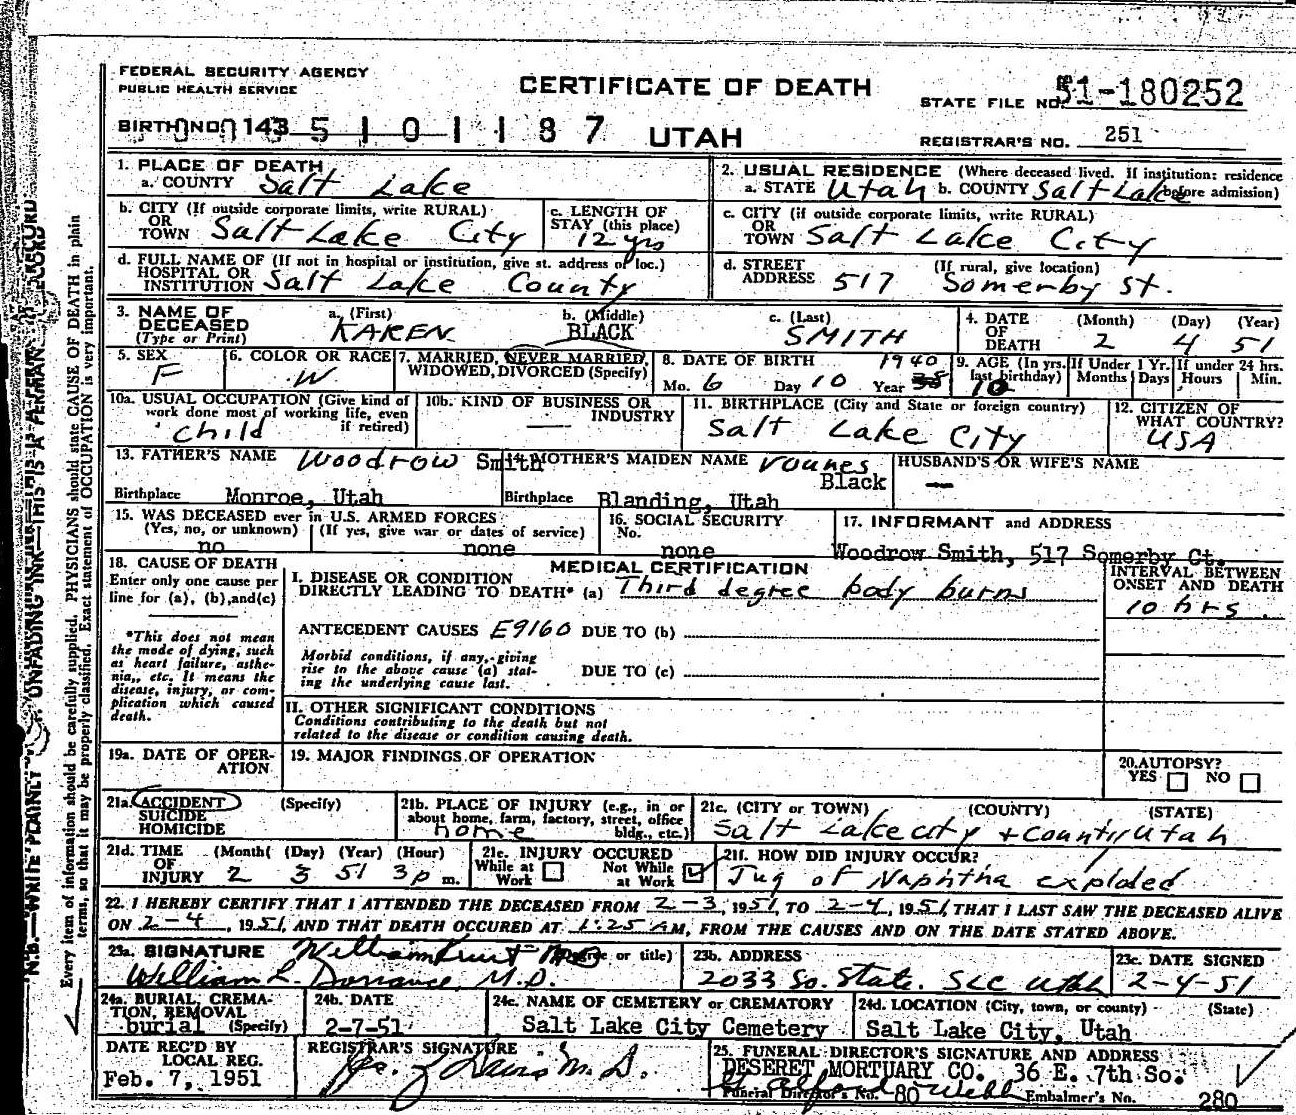 FEDERAL SECURITY AGENCY
PUBLIC HEALTH SERVICE
CERTIFICATE OF DEATH
STATE FILE NO. 51-180252
BIRTH NO. 143 5 1 0 1 1 8 7 UTAH
REGISTRAR'S NO. 251
1. PLACE OF DEATH
a. COUNTY Salt Lake
2. USUAL RESIDENCE (Where deceased lived. If institution: residence before admission)
a. STATE Utah b. COUNTY Salt Lake
b. CITY (If outside corporate limits, write RURAL) OR TOWN Salt Lake City
c. LENGTH OF STAY (this place) 12 yrs
c. CITY (if outside corporate limits, write RURAL) OR TOWN Salt Lake City
d. FULL NAME OF (If not in hospital or institution, give st. address or loc.) HOSPITAL OR INSTITUTION Salt Lake County
d. STREET ADDRESS (If rural, give location) 517 Somerby St.
3. NAME OF DECEASED (Type or Print)
a. (First) KAREN
b. (Middle) BLACK
c. (Last) SMITH
4. DATE OF DEATH (Month) (Day) (Year) 2 4 51
5. SEX F
6. COLOR OR RACE W
7. MARRIED, NEVER MARRIED, WIDOWED, DIVORCED (Specify)
8. DATE OF BIRTH Mo. 6 Day 10 Year 1940
9. AGE (In yrs. last birthday) 10
If Under 1 Yr. Months Days
If under 24 hrs. Hours Min.
10a. USUAL OCCUPATION (Give kind of work done most of working life, even if retired) Child
10b. KIND OF BUSINESS OR INDUSTRY —
11. BIRTHPLACE (City and State or foreign country) Salt Lake City
12. CITIZEN OF WHAT COUNTRY? USA
13. FATHER'S NAME Woodrow Smith
Birthplace Monroe, Utah
14. MOTHER'S MAIDEN NAME Black
Birthplace Blanding, Utah
HUSBAND'S OR WIFE'S NAME —
15. WAS DECEASED ever in U.S. ARMED FORCES
(Yes, no, or unknown) (If yes, give war or dates of service)
no none
16. SOCIAL SECURITY No. none
17. INFORMANT and ADDRESS
Woodrow Smith, 517 Somerby Ct.
18. CAUSE OF DEATH
Enter only one cause per line for (a), (b), and (c)
*This does not mean the mode of dying, such as heart failure, asthenia, etc. It means the disease, injury, or complication which caused death.
MEDICAL CERTIFICATION
I. DISEASE OR CONDITION DIRECTLY LEADING TO DEATH* (a) Third degree body burns
INTERVAL BETWEEN ONSET AND DEATH
10 hrs.
ANTECEDENT CAUSES E9160 DUE TO (b)
Morbid conditions, if any, giving rise to the above cause (a) stating the underlying cause last.
DUE TO (c)
II. OTHER SIGNIFICANT CONDITIONS
Conditions contributing to the death but not related to the disease or condition causing death.
19a. DATE OF OPERATION
19. MAJOR FINDINGS OF OPERATION
20. AUTOPSY?
YES NO
21a. ACCIDENT SUICIDE HOMICIDE (Specify)
21b. PLACE OF INJURY (e.g., in or about home, farm, factory, street, office bldg., etc.) home
21c. (CITY or TOWN) (COUNTY) (STATE)
Salt Lake city + county Utah
21d. TIME OF INJURY (Month) (Day) (Year) (Hour) 2 3 51 3p m.
21e. INJURY OCCURED
While at Work Not While at Work
21f. HOW DID INJURY OCCUR?
Jug of Naphtha exploded
22. I HEREBY CERTIFY THAT I ATTENDED THE DECEASED FROM 2-3, 1951, TO 2-4, 1951, THAT I LAST SAW THE DECEASED ALIVE
ON 2-4, 1951, AND THAT DEATH OCCURED AT 1:25 AM, FROM THE CAUSES AND ON THE DATE STATED ABOVE.
23a. SIGNATURE (Degree or title)
William L. M.D.
23b. ADDRESS
2033 So. State. SLC Utah
23c. DATE SIGNED
2-4-51
24a. BURIAL, CREMATION, REMOVAL (Specify) burial
24b. DATE 2-7-51
24c. NAME OF CEMETERY or CREMATORY
Salt Lake City Cemetery
24d. LOCATION (City, town, or county) (State)
Salt Lake City, Utah
DATE REC'D BY LOCAL REG.
Feb. 7, 1951
REGISTRAR'S SIGNATURE
M.D.
25. FUNERAL DIRECTOR'S SIGNATURE AND ADDRESS
DESERET MORTUARY CO. 36 E. 7th So.
Funeral Director's No. 80 Embalmer's No. 280
Every item of information should be carefully supplied. PHYSICIANS should state CAUSE OF DEATH in plain
terms, so that it may be properly classified. Exact statement of OCCUPATION is very important.